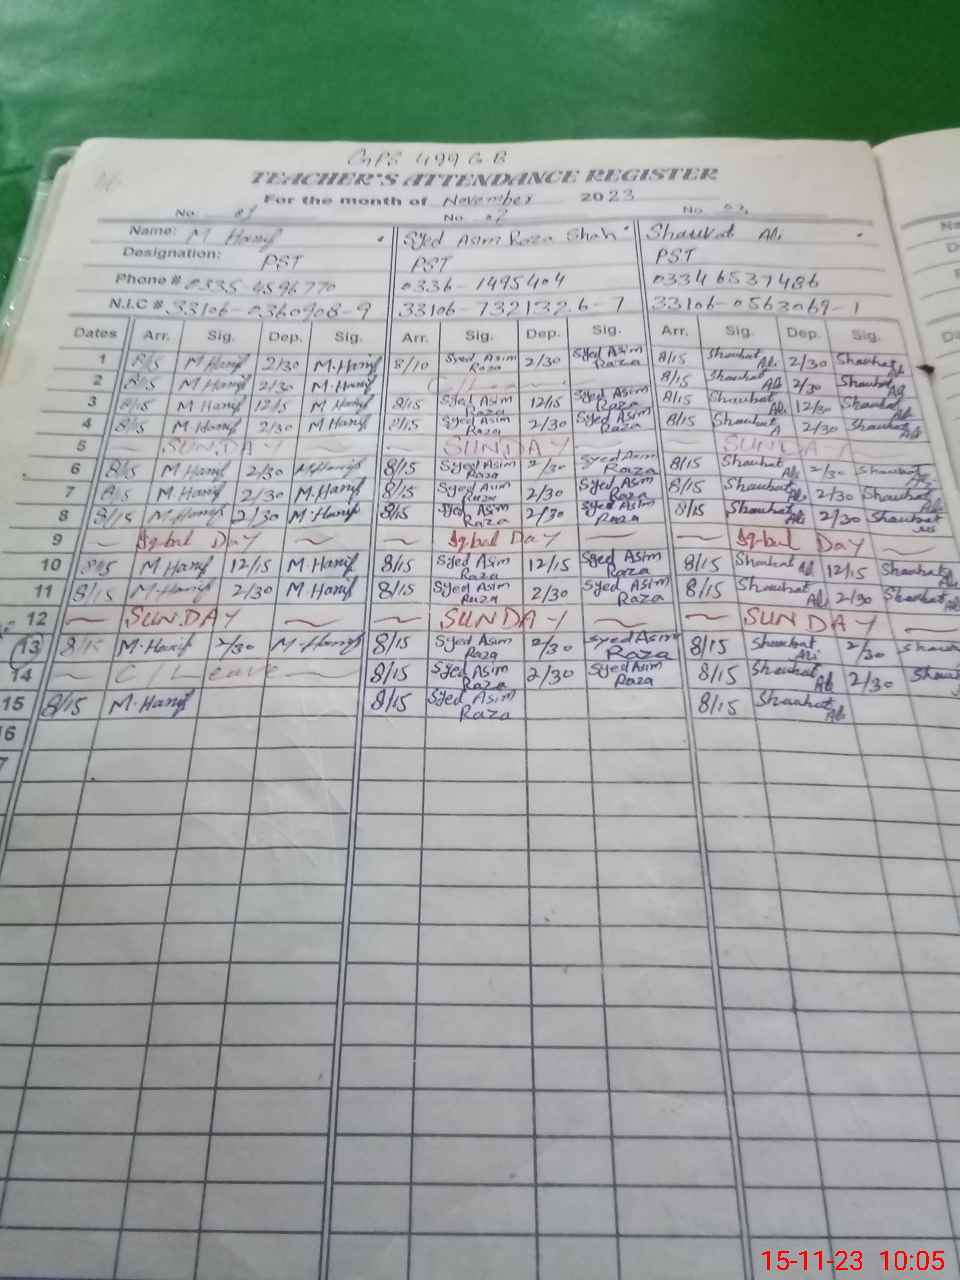 GPS 499 G.B
TEACHER'S ATTENDANCE REGISTER
For the month of November 2023
No. 01 No. 02 No. 03
Name: M Hanif Syed Asim Raza Shah Shaukat Ali
Designation: PST PST PST
Phone # 0335-4596770 0336-1495404 03346537486
N.I.C # 33106-0360908-9 33106-7321326-7 33106-0563069-1
Dates Arr. Sig. Dep. Sig. Arr. Sig. Dep. Sig. Arr. Sig. Dep. Sig.
1 8/15 M Hanif 2/30 M.Hanif 8/10 Syed Asim Raza 2/30 Syed Asim Raza 8/15 Shaukat Ali 2/30 Shaukat Ali
2 8/15 M Hanif 2/30 M.Hanif C/Leave 8/15 Shaukat Ali 2/30 Shaukat Ali
3 8/15 M Hanif 12/15 M Hanif 8/15 Syed Asim Raza 12/15 Syed Asim Raza 8/15 Shaukat Ali 12/30 Shaukat Ali
4 8/15 M Hanif 2/30 M Hanif 8/15 Syed Asim Raza 2/30 Syed Asim Raza 8/15 Shaukat A 2/30 Shaukat Ali
5 SUNDAY SUNDAY SUNDAY
6 8/15 M Hanif 2/30 M Hanif 8/15 Syed Asim Raza 2/30 Syed Asim Raza 8/15 Shaukat Ali 2/30 Shaukat Ali
7 8/15 M Hanif 2/30 M.Hanif 8/15 Syed Asim Raza 2/30 Syed Asim Raza 8/15 Shaukat Ali 2/30 Shaukat Ali
8 8/15 M.Hanif 2/30 M.Hanif 8/15 Syed Asim Raza 2/30 Syed Asim Raza 8/15 Shaukat Ali 2/30 Shaukat Ali
9 Iqbal Day Iqbal Day Iqbal Day
10 8/15 M Hanif 12/15 M Hanif 8/15 Syed Asim Raza 12/15 Syed Asim Raza 8/15 Shaukat Ali 12/15 Shaukat Ali
11 8/15 M.Hanif 2/30 M Hanif 8/15 Syed Asim Raza 2/30 Syed Asim Raza 8/15 Shaukat Ali 2/30 Shaukat Ali
12 SUNDAY SUNDAY SUNDAY
13 8/15 M.Hanif 2/30 M.Hanif 8/15 Syed Asim Raza 2/30 Syed Asim Raza 8/15 Shaukat Ali 2/30
14 C/Leave 8/15 Syed Asim Raza 2/30 Syed Asim Raza 8/15 Shaukat Ali 2/30
15 8/15 M.Hanif 8/15 Syed Asim Raza 8/15 Shaukat Ali
16
15-11-23 10:05